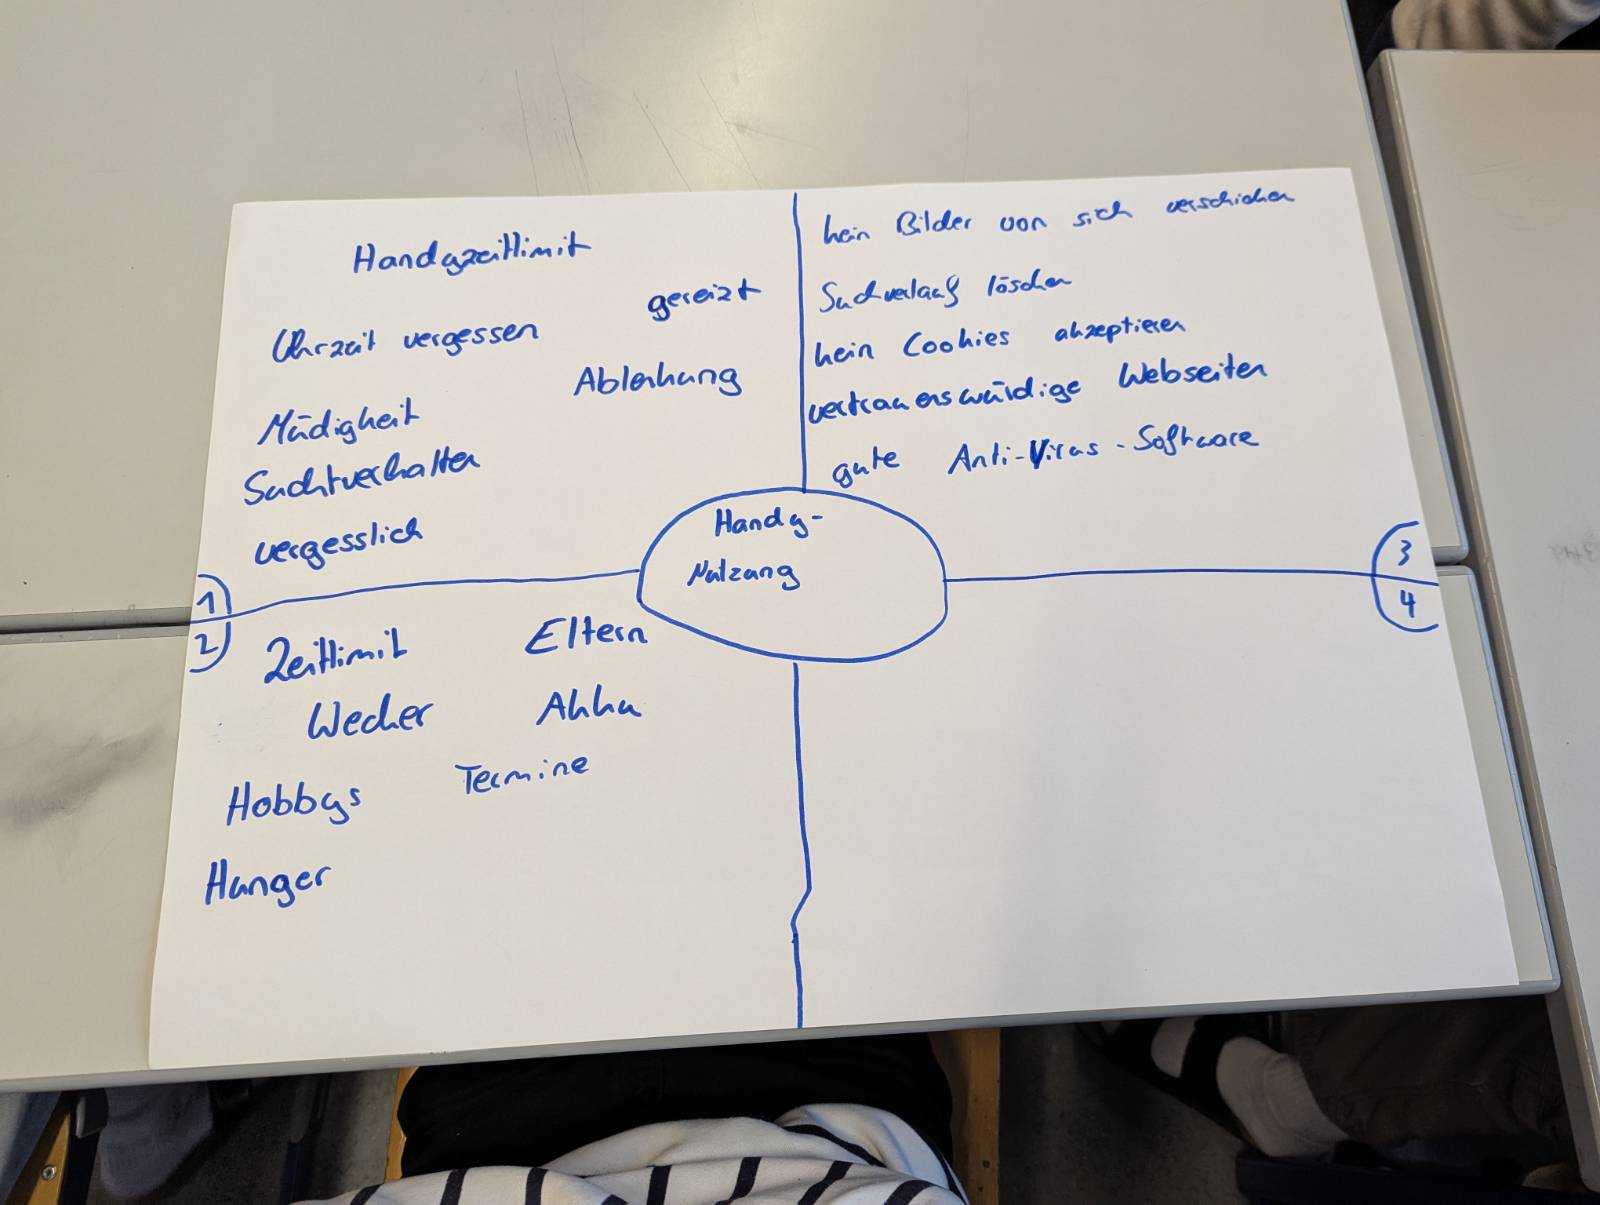 Handyzeitlimit
gereizt
Uhrzeit vergessen
Ablenkung
Müdigkeit
Suchtverhalten
vergesslich
1
2
Zeitlimit Eltern
Wecker Akku
Hobbys Termine
Hunger
Handy-
Nutzung
kein Bilder von sich verschicken
Suchverlauf löschen
kein Cookies akzeptieren
vertrauenswürdige Webseiten
gute Anti-Virus-Software
3
4